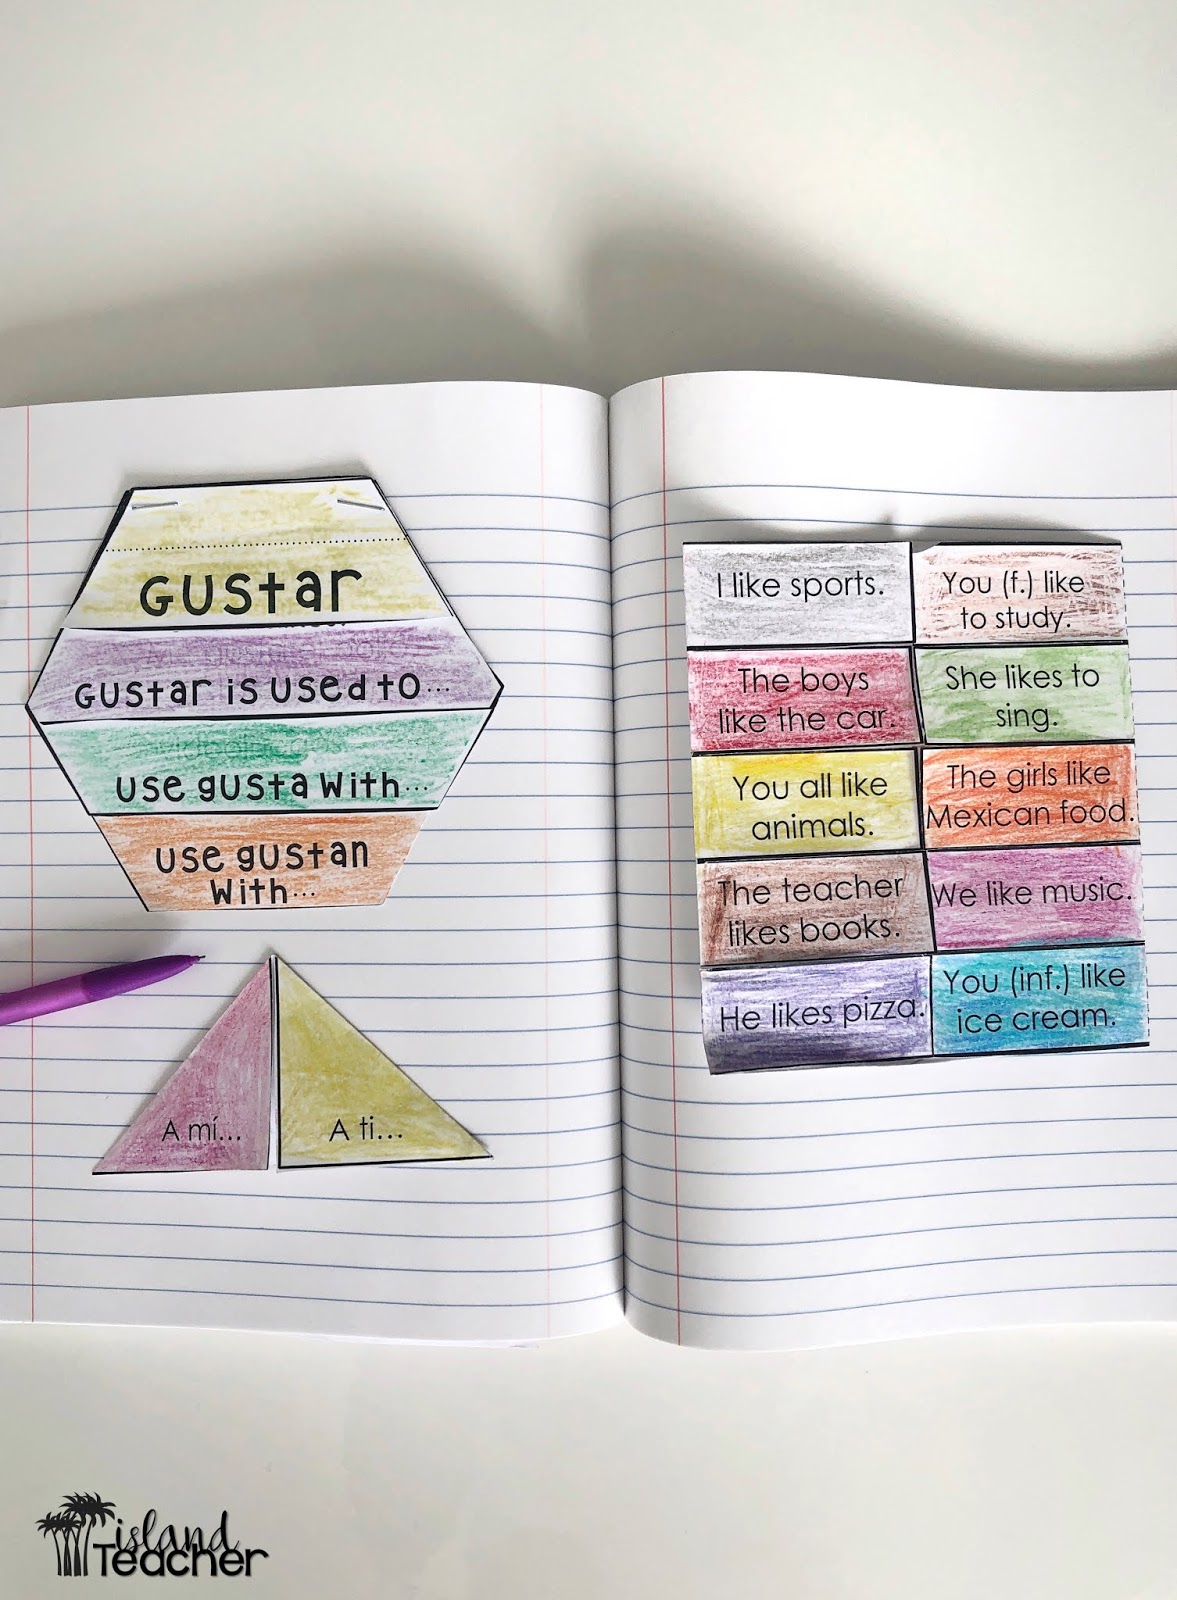 Gustar
Gustar is used to...
Use gusta with...
Use gustan
with...
A mí...
A ti...
I like sports.
You (f.) like
to study.
The boys
like the car.
She likes to
sing.
You all like
animals.
The girls like
Mexican food.
The teacher
likes books.
We like music.
He likes pizza.
You (inf.) like
ice cream.
island
Teacher